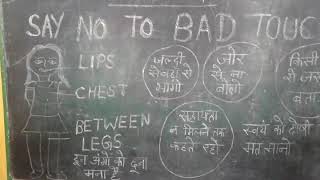 SAY NO TO BAD TOUC
LIPS
CHEST
BETWEEN
LEGS
इन अंगों को छूना
मना है
जल्दी
से वहां से
भागो
जोर
से ना
बोलो
किसी
बता
सहायता
न मिलने तक
कहते रहो
स्वयं को दोषी
मत मानो